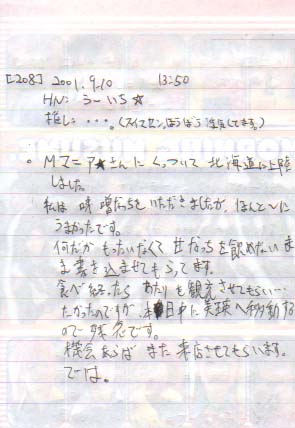 [208] 2001.9.10 13:50
HN: うーいち☆
推し: ・・・。(アイスマン。ぼうぼう 注目してます。)
。Mマニア★さんにくっついて 北海道に上陸
しました。
私は 味噌だっちをいただきましたが、ほんと〜に
うまかったです。
何だか もったいなくて 甘だっちを飲めないま
ま書き込ませてもらってます。
食べ終ったら あたりを観光させてもらい…
たかったのですが、本日中に 美瑛へ移動する
ので 残念です。
機会あらば また 来店させてもらいます。
では。